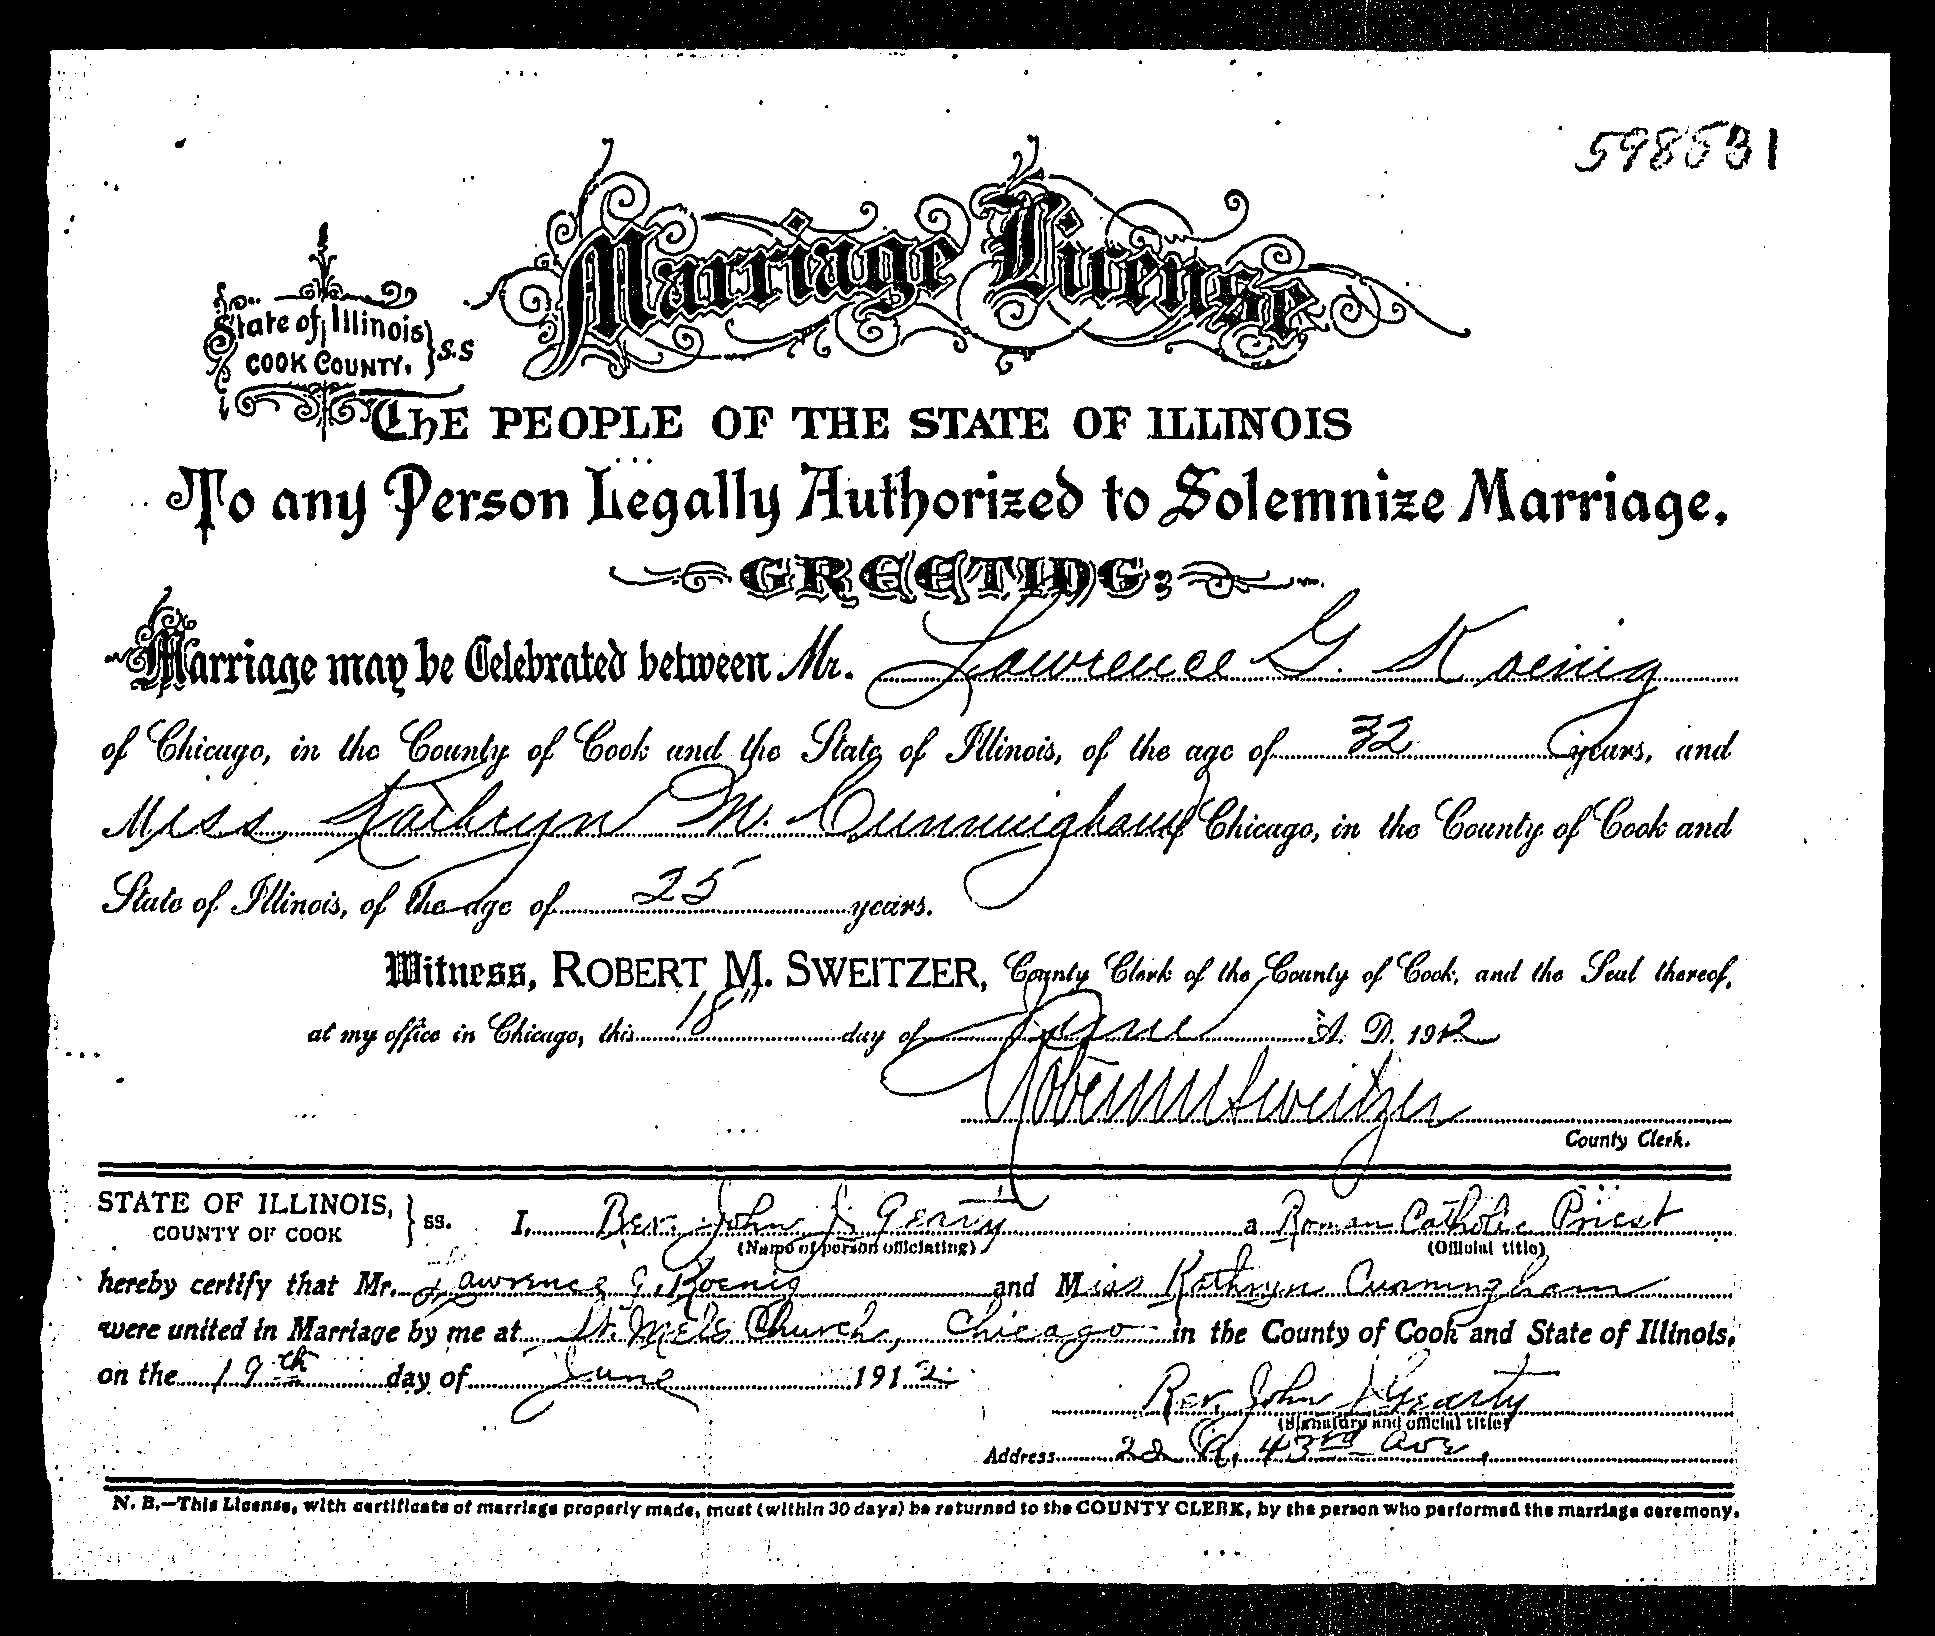 598531
Marriage License
State of Illinois } S.S
COOK COUNTY.
THE PEOPLE OF THE STATE OF ILLINOIS
To any Person Legally Authorized to Solemnize Marriage.
GREETING:
Marriage may be Celebrated between Mr. Lawrence G. Koenig
of Chicago, in the County of Cook and the State of Illinois, of the age of 32 years, and
Miss Kathryn M. Cunningham of Chicago, in the County of Cook and
State of Illinois, of the age of 25 years.
Witness, ROBERT M. SWEITZER, County Clerk of the County of Cook, and the Seal thereof,
at my office in Chicago, this 18" day of June A. D. 1912
Robert M Sweitzer
County Clerk.
STATE OF ILLINOIS, } ss. I, Rev. John J. Gearty a Roman Catholic Priest
COUNTY OF COOK (Name of person officiating) (Official title)
hereby certify that Mr. Lawrence G. Koenig and Miss Kathryn Cunningham
were united in Marriage by me at St. Mel's Church, Chicago in the County of Cook and State of Illinois,
on the 19th day of June 1912
Rev. John J Gearty
(Signature and official title)
Address 22 N. 43rd Ave.
N. B.—This License, with certificate of marriage properly made, must (within 30 days) be returned to the COUNTY CLERK, by the person who performed the marriage ceremony.